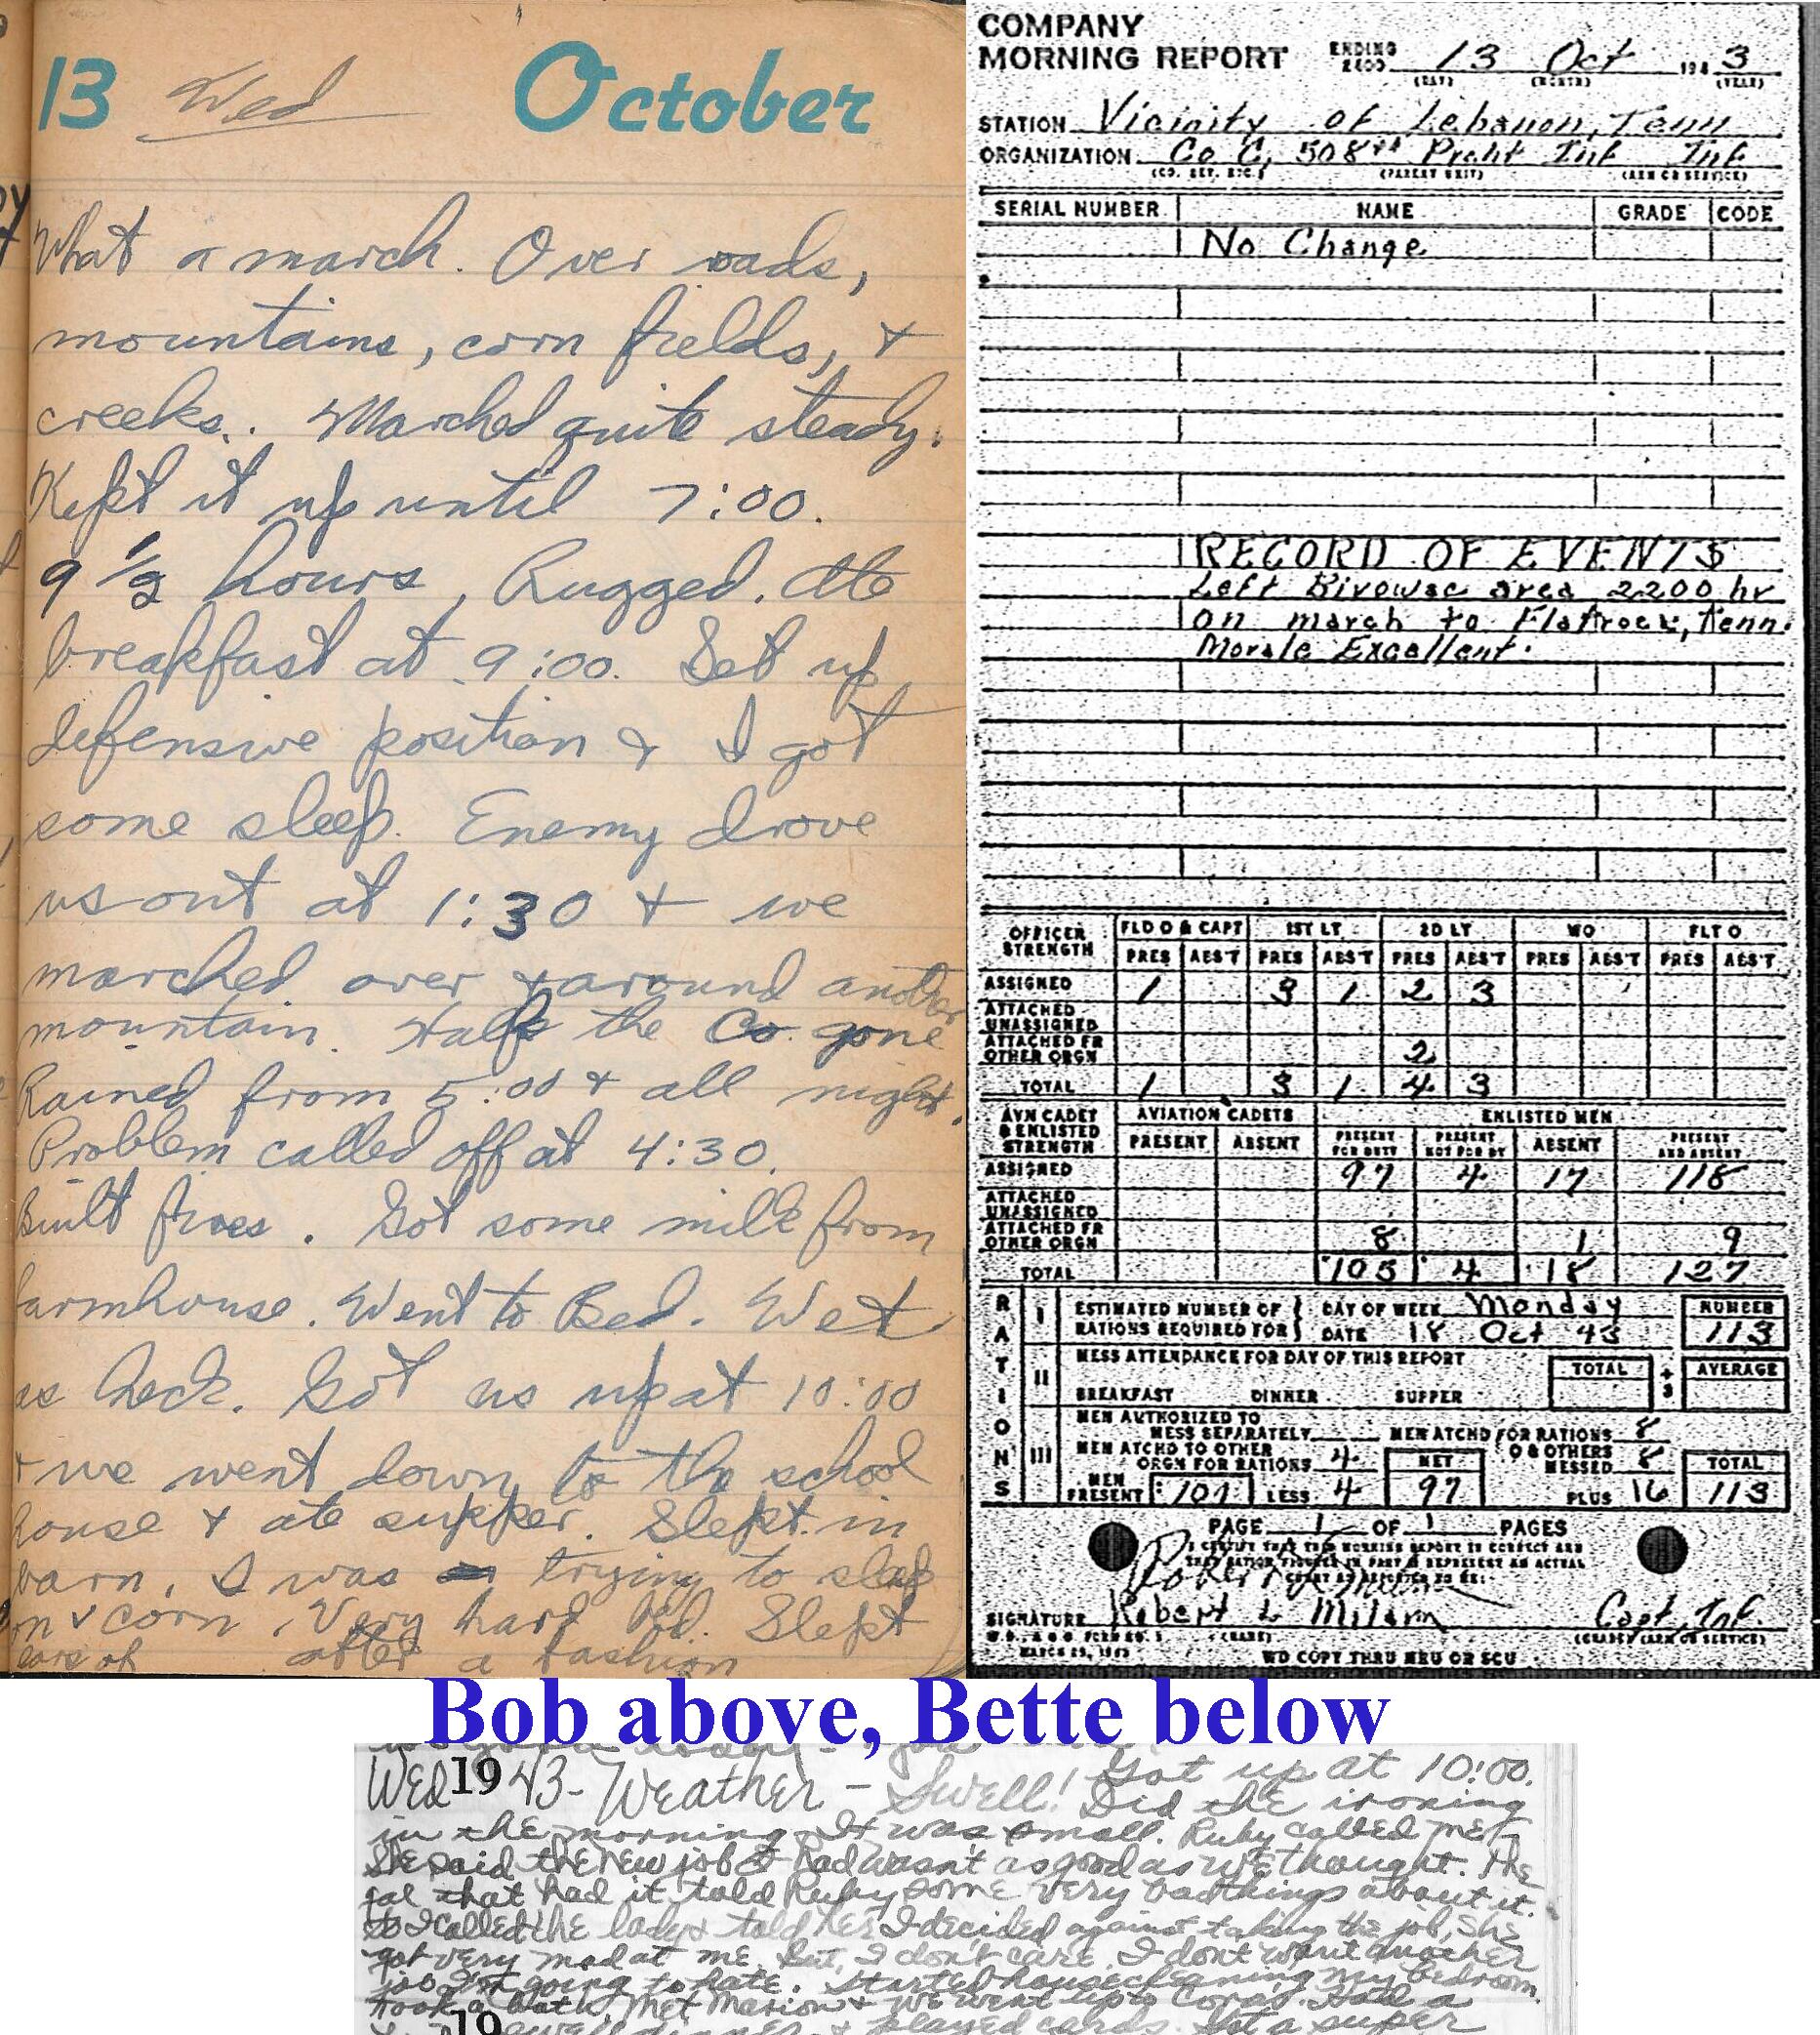 13 Wed October
What a march. Over roads,
mountains, corn fields, &
creeks.. Marched quite steady.
Kept it up until 7:00.
9 1/2 hours, Rugged. Ate
breakfast at 9:00. Set up
defensive position & I got
some sleep. Enemy drove
us out at 1:30 & we
marched over & around another
mountain. Half the Co. gone
Rained from 5:00 & all night.
Problem called off at 4:30.
Built fires. Got some milk from
farmhouse. Went to Bed. Wet
as heck. Got us up at 10:00
& we went down to the school
house & ate supper. Slept in
barn. I was trying to sleep
on & corn. Very hard bed. Slept
ears of after a fashion
COMPANY
MORNING REPORT ENDING 2400 13 Oct 1943
(DAY) (MONTH) (YEAR)
STATION Vicinity of Lebanon, Tenn
ORGANIZATION Co C, 508th Prcht Inf Inf
(CO. DET. ETC.) (PARENT UNIT) (ARM OR SERVICE)
SERIAL NUMBER NAME GRADE CODE
No Change
RECORD OF EVENTS
Left Bivowac area 2200 hr
on march to Flatrock, Tenn.
Morale Excellent.
OFFICER STRENGTH FLD O & CAPT 1ST LT 2D LT WO FLT O
PRES ABS'T PRES ABS'T PRES ABS'T PRES ABS'T PRES ABS'T
ASSIGNED 1 3 1 2 3
ATTACHED UNASSIGNED
ATTACHED FR OTHER ORGN 2
TOTAL 1 3 1 4 3
AVN CADET & ENLISTED STRENGTH AVIATION CADETS ENLISTED MEN
PRESENT ABSENT PRESENT FOR DUTY PRESENT NOT FOR DY ABSENT PRESENT AND ABSENT
ASSIGNED 97 4 17 118
ATTACHED UNASSIGNED
ATTACHED FR OTHER ORGN 8 1 9
TOTAL 105 4 18 127
RATIONS
I ESTIMATED NUMBER OF RATIONS REQUIRED FOR DAY OF WEEK Monday NUMBER
DATE 18 Oct 43 113
II MESS ATTENDANCE FOR DAY OF THIS REPORT TOTAL ÷ 3 AVERAGE
BREAKFAST DINNER SUPPER
III MEN AUTHORIZED TO MESS SEPARATELY MEN ATCHD FOR RATIONS 8
MEN ATCHD TO OTHER ORGN FOR RATIONS 4 NET O & OTHERS MESSED 8 TOTAL
MEN PRESENT 101 LESS 4 97 PLUS 16 113
PAGE 1 OF 1 PAGES
I CERTIFY THAT THIS MORNING REPORT IS CORRECT AND
SIGNATURE Robert L Milam Capt, Inf.
(NAME) (GRADE) (ARM OR SERVICE)
MARCH 25, 1943 WD COPY THRU MRU OR SCU
Bob above, Bette below
Wed 1943 - Weather - Swell! Got up at 10:00.
Did the ironing
in the morning. It was small. Ruby called me.
She said the new job I had wasn't as good as we thought. The
gal that had it told Ruby some very bad things about it.
So I called the lady & told her I decided against taking the job, she
got very mad at me. But, I don't care. I dont want another
job I'm going to hate. Started housecleaning my bedroom.
Took a bath, met Marion & we went up to Coras. Had a
19 swell dinner & played cards. Got a super